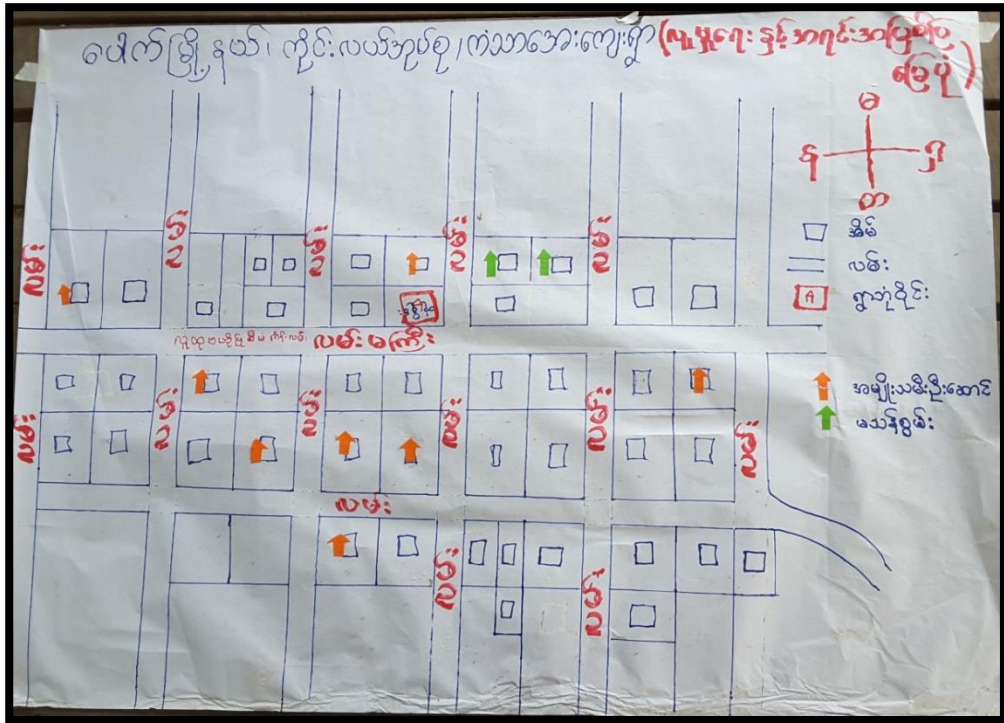 ပေါက်မြို့နယ်၊ ကိုင်းလယ်အုပ်စု၊ ကံသာအေးကျေးရွာ (လူမှုရေးနှင့်အရင်းအမြစ်ပြ
မြေပုံ)
မ
န
ရှ
တ
အိမ်
လမ်း
A
ရွာဘုံဝိုင်း
အမျိုးသမီးဦးဆောင်
မသန်စွမ်း
လမ်း
လမ်း
လမ်း
လမ်း
လမ်း
လမ်းမကြီး
လမ်း
လမ်း
လမ်း
လမ်း
လမ်း
လမ်း
လမ်း
လမ်း
လမ်း